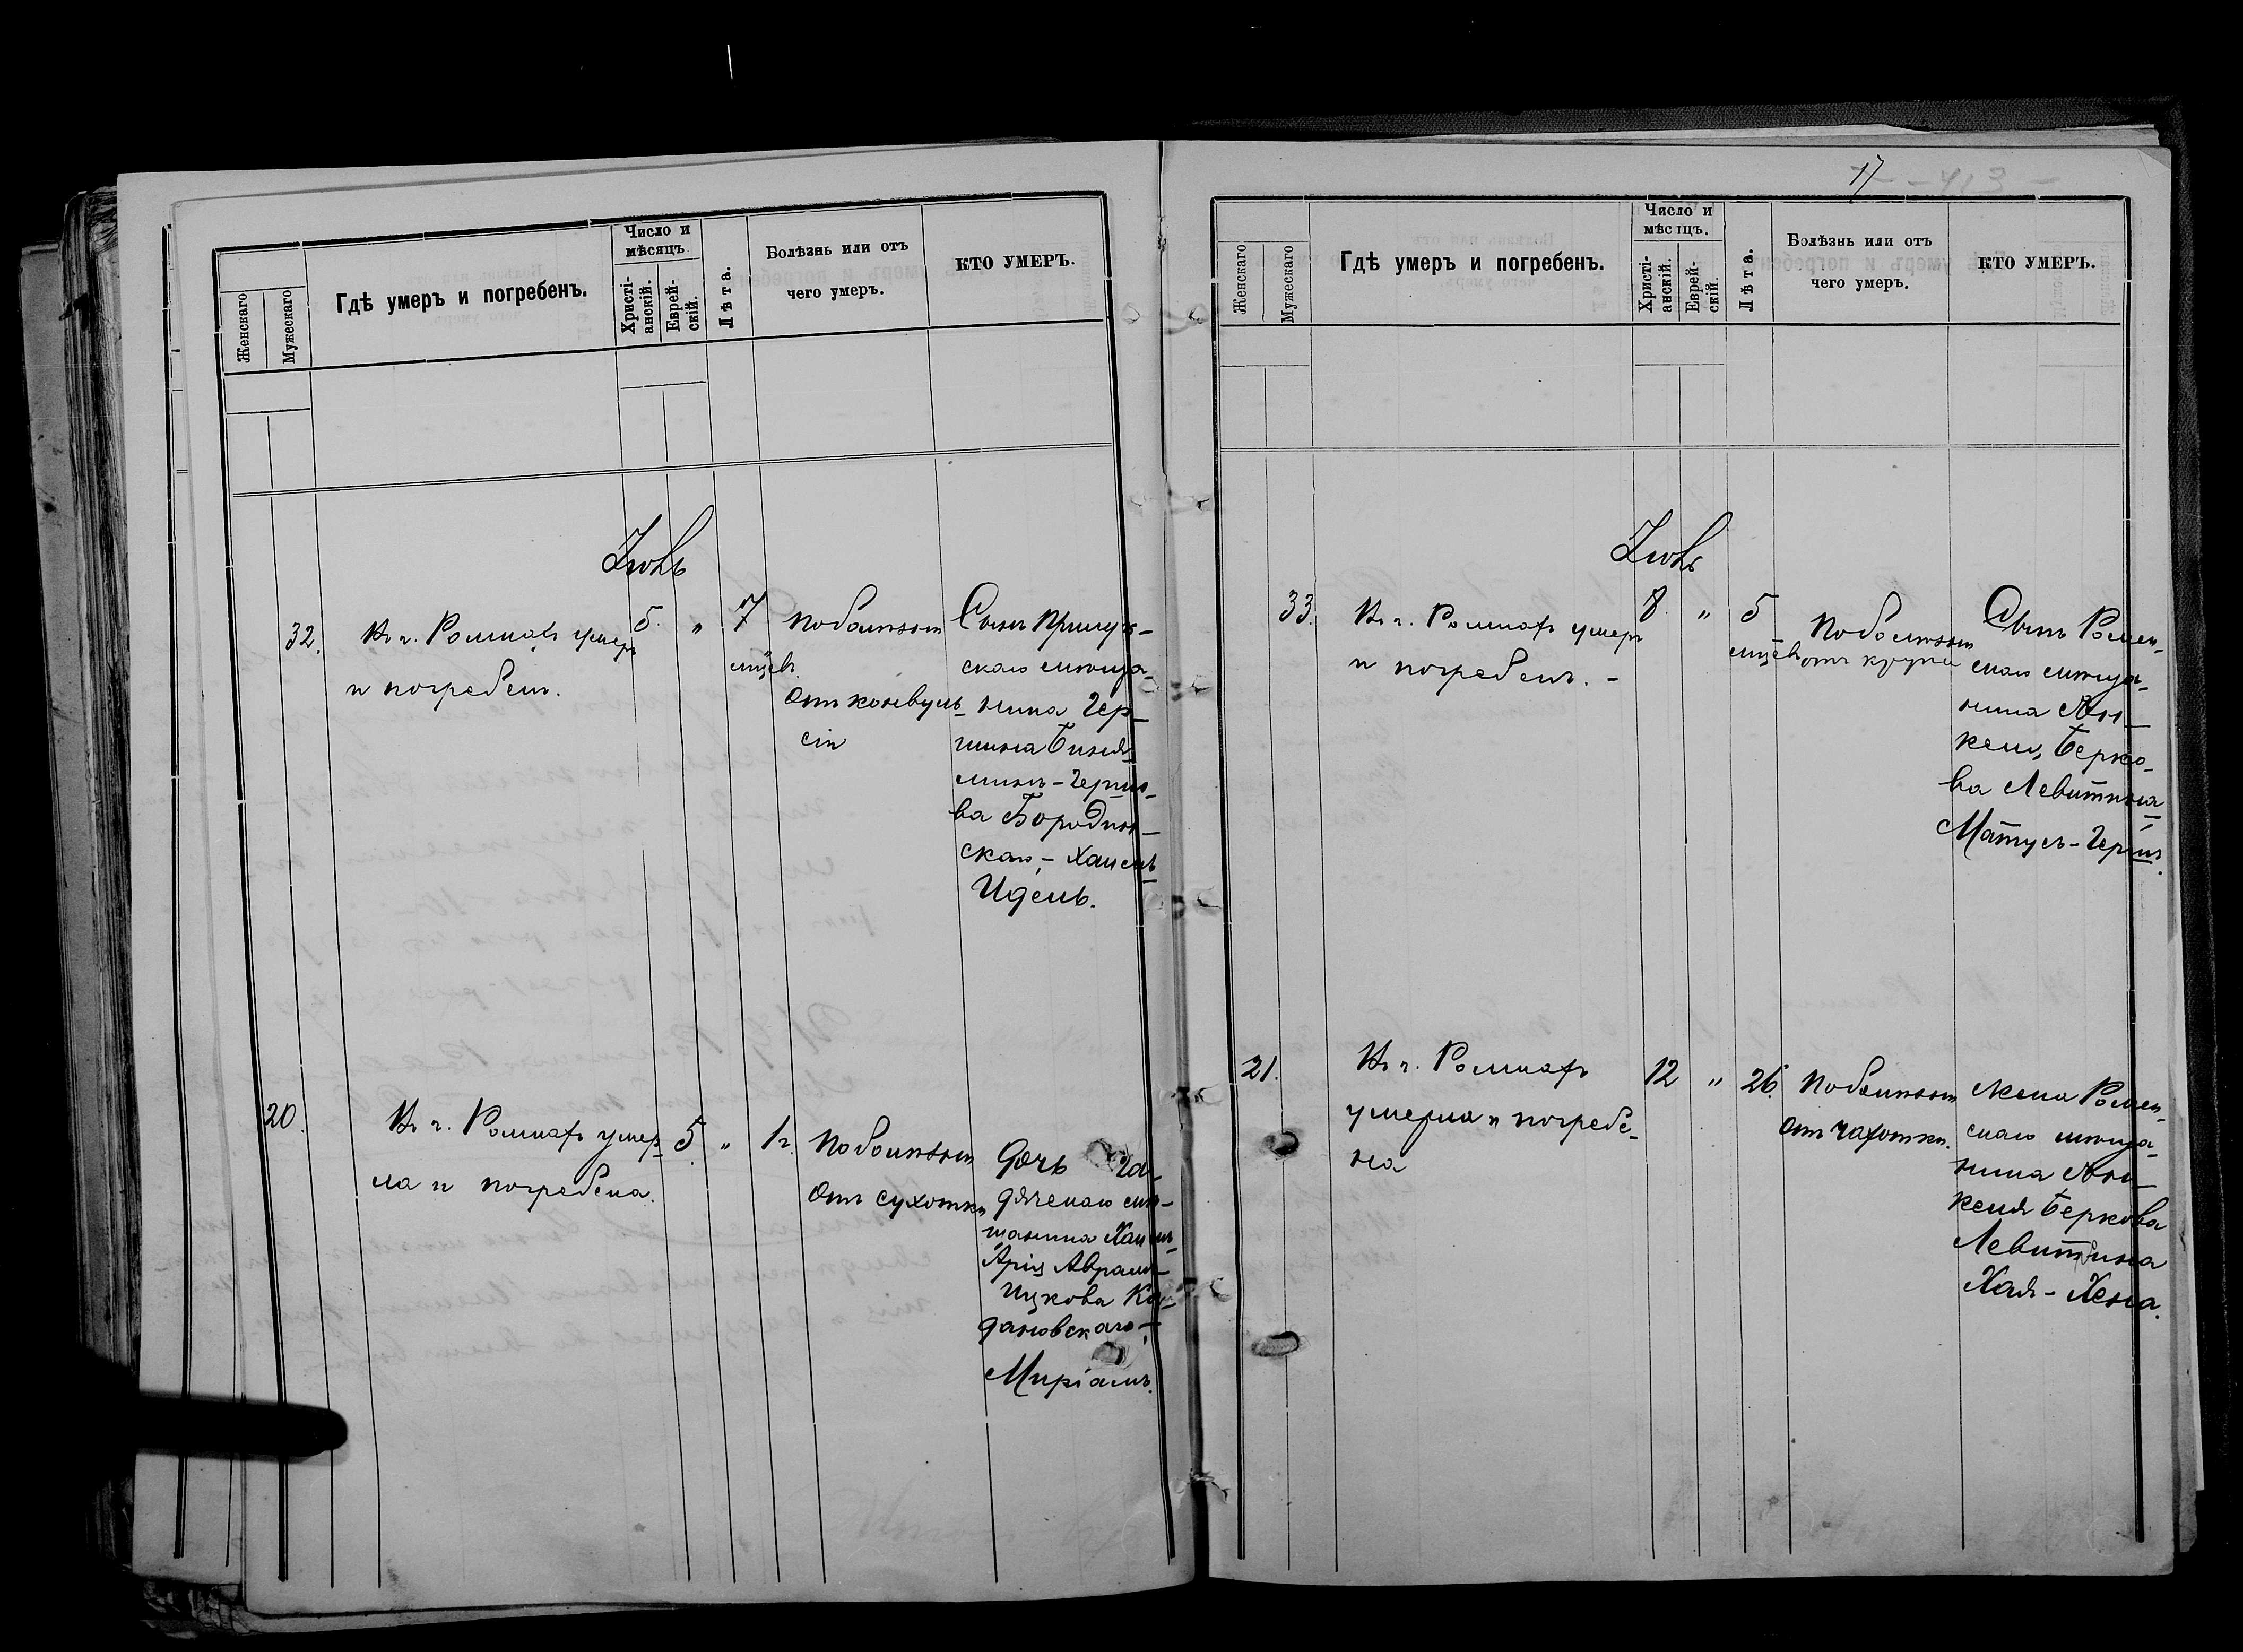 Женскаго
Мужескаго
Гдѣ умеръ и погребенъ.
Число и
мѣсяцъ.
Христі-
анскій.
Еврей-
скій.
Лѣта.
Болѣзнь или отъ
чего умеръ.
КТО УМЕРЪ.
Іюнь
32.
Въ г. Ромнахъ умеръ
и погребенъ.
5.
"
7
мцевъ
По болѣзни
отъ конвуль-
сіи
Сынъ Прилук-
скаго мѣща-
нина Гер-
шина Беня
минъ-Герш-
ва Бородин-
скаго, - Хаимъ
Идель.
20.
Въ г. Ромнахъ умер-
ла и погребена.
5
"
1 г.
По болѣзни
отъ сухотки
Дочь Га-
дячскаго мѣ-
щанина Хаимъ
Арія Аврамъ-
Ицкова Ка-
дановскаго, -
Миріамъ.
17 - 413 -
Женскаго
Мужескаго
Гдѣ умеръ и погребенъ.
Число и
мѣсяцъ.
Христі-
анскій.
Еврей-
скій.
Лѣта.
Болѣзнь или отъ
чего умеръ.
КТО УМЕРЪ.
Іюнь
33.
Въ г. Ромнахъ умеръ
и погребенъ. -
8.
"
5
мцевъ
По болѣзни
отъ крупа
Сынъ Ромен-
скаго мѣща-
нина Ян-
келя Берко-
ва Левитина
Матусъ-Гершъ.
21.
Въ г. Ромнахъ
умерла и погребе-
на
12
"
26.
По болѣзни
отъ чахотки.
Жена Ромен-
скаго мѣща-
нина Ян-
келя Беркова
Левитина
Хая-Хена.